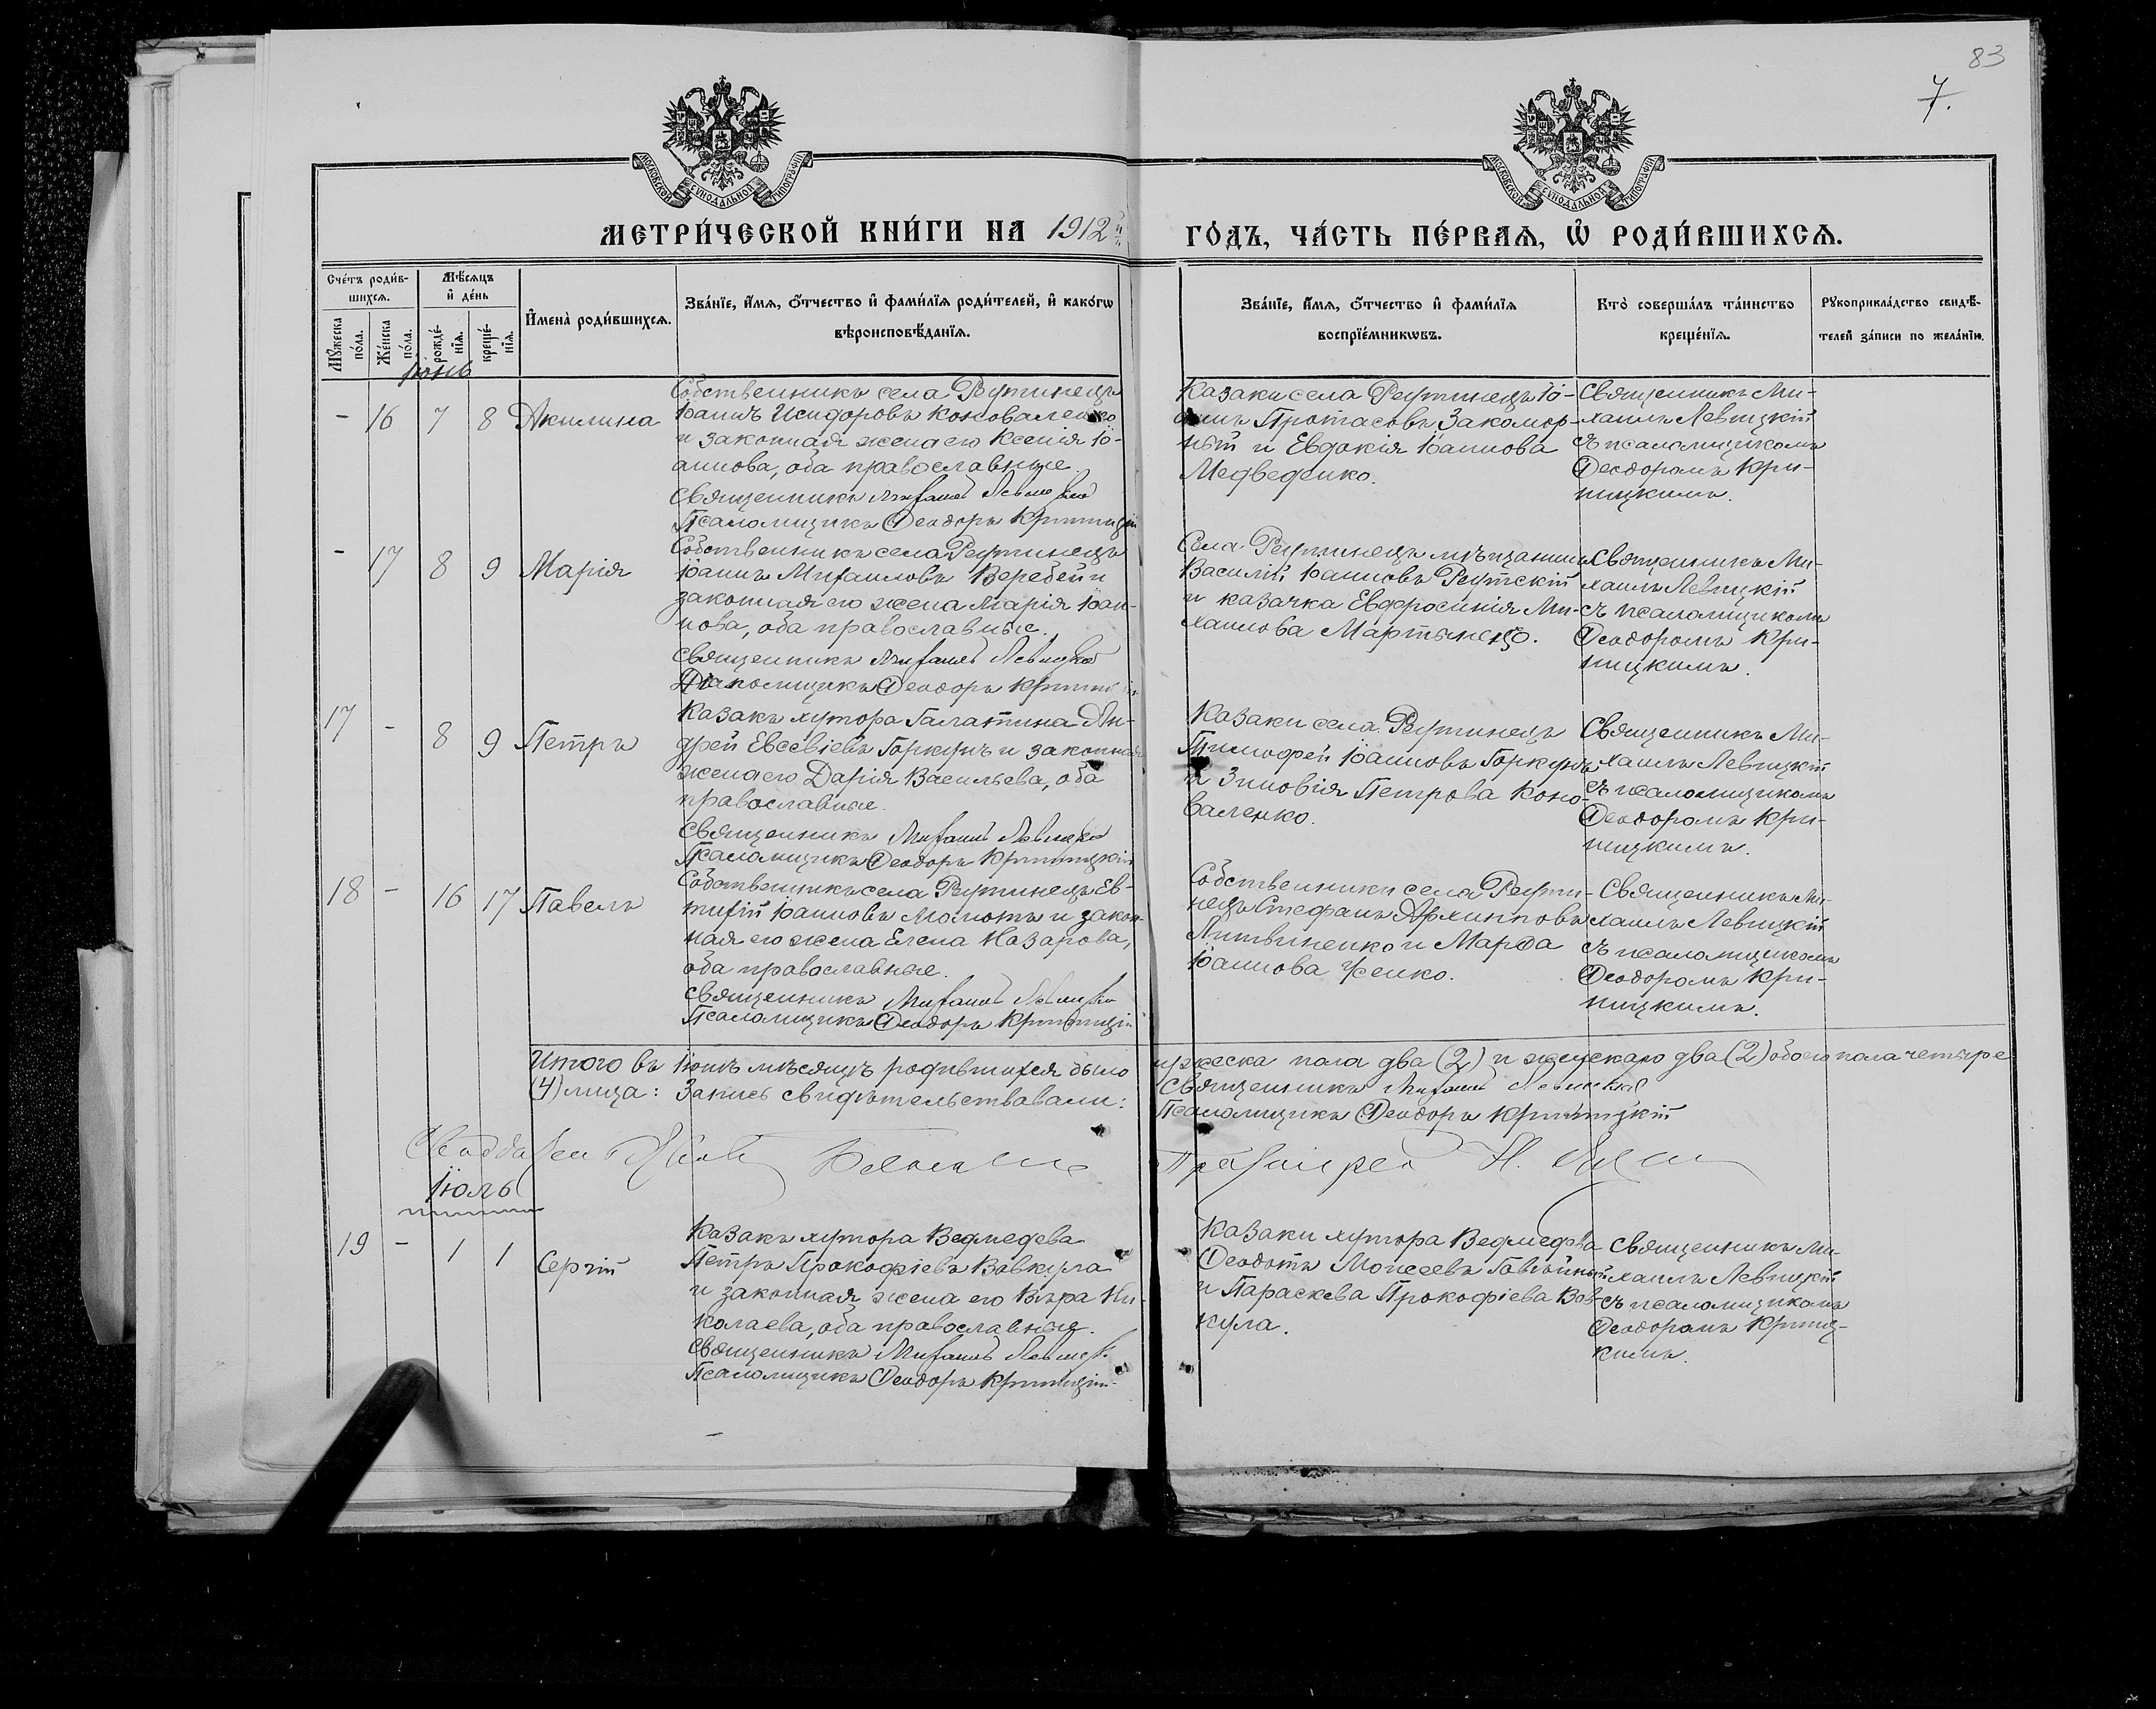 83
7.
МОСКОВСКОЙ СѴНОДАЛЬНОЙ ТИПОГРАФІИ
МОСКОВСКОЙ СѴНОДАЛЬНОЙ ТИПОГРАФІИ
МЕТРИ́ЧЕСКОЙ КНИ́ГИ НА 1912й ГО́ДЪ, ЧА́СТЬ ПЕ́РВАѦ, Ѡ҆ РОДИ́ВШИХСѦ.
Сче́тъ роди́в-
шихсѧ.
Мѣ́сѧцъ
и҆ де́нь
Мꙋ́жеска
по́ла.
Же́нска
по́ла.
рожде́-
нїѧ.
креще́-
нїѧ.
И҆мена̀ роди́вшихсѧ.
Зва́нїе, и҆́мѧ, ѻ҆́тчество и҆ фами́лїѧ роди́телей, и҆ како́гѡ
вѣроисповѣ́данїѧ.
Зва́нїе, и҆́мѧ, ѻ҆́тчество и҆ фами́лїѧ
воспрїе́мникѡвъ.
Кто̀ соверша́лъ та́инство
креще́нїѧ.
Рꙋкоприкла́дство свидѣ́-
телей за́писи по жела́нїю.
Іюнь
- 16 7 8 Акилина
Собственникъ села Рутинецъ
Іоаннъ Исидоровъ Коноваленко
и законная жена его Ксенія Іо-
аннова, оба православные.
Священникъ Михаилъ Левицкій
Псаломщикъ Ѳеодоръ Криницкій
Казаки села Рутинецъ Іо-
аннъ Протасовъ Закомор-
ный и Евдокія Іоаннова
Медведенко.
Священникъ Ми-
хаилъ Левицкій
съ псаломщикомъ
Ѳеодоромъ Кри-
ницкимъ.
- 17 8 9 Марія
Собственникъ села Рутинецъ
Іоаннъ Михаиловъ Веребей и
законная его жена Марія Іоан-
нова, оба православные.
Священникъ Михаилъ Левицкій
Псаломщикъ Ѳеодоръ Криницкій
Села Рутинецъ мѣщанинъ
Василій Іоанновъ Реутскій
и казачка Евфросинія Ми-
хаилова Мартыненко.
Священникъ Ми-
хаилъ Левицкій
съ псаломщикомъ
Ѳеодоромъ Кри-
ницкимъ.
17 - 8 9 Петръ
Казакъ хутора Галатина Ан-
дрей Евсевіевъ Горкунъ и законная
жена его Дарія Васильева, оба
православные.
Священникъ Михаилъ Левицкій
Псаломщикъ Ѳеодоръ Криницкій
Казаки села Рутинецъ
Тимофей Іоанновъ Горкунъ
и Зиновія Петрова Коно-
валенко.
Священникъ Ми-
хаилъ Левицкій
съ псаломщикомъ
Ѳеодоромъ Кри-
ницкимъ.
18 - 16 17 Павелъ
Собственникъ села Рутинецъ Ев-
тихій Іоанновъ Молотъ и закон-
ная его жена Елена Назарова,
оба православные.
Священникъ Михаилъ Левицкій
Псаломщикъ Ѳеодоръ Криницкій
Собственники села Рути-
нецъ Стефанъ Архиповъ
Литвиненко и Марѳа
Іоаннова Усенко.
Священникъ Ми-
хаилъ Левицкій
съ псаломщикомъ
Ѳеодоромъ Кри-
ницкимъ.
Итого въ Іюнѣ мѣсяцѣ родившихся было мужеска пола два (2) и женскаго два (2) обоего пола четыре
(4) лица: Запись свидѣтельствовали: Священникъ Михаилъ Левицкій
Псаломщикъ Ѳеодоръ Криницкій
Іюль
19 - 1 1 Сергій
Казакъ хутора Ведмедева
Петръ Прокофіевъ Вовкула
и законная жена его Вѣра Ни-
колаева, оба православные.
Священникъ Михаилъ Левицкій
Псаломщикъ Ѳеодоръ Криницкій
Казаки хутора Ведмедева
Ѳеодотъ Моисеевъ
и Параскева Прокофіева Вов-
кула.
Священникъ Ми-
хаилъ Левицкій
съ псаломщикомъ
Ѳеодоромъ Криниц-
кимъ.